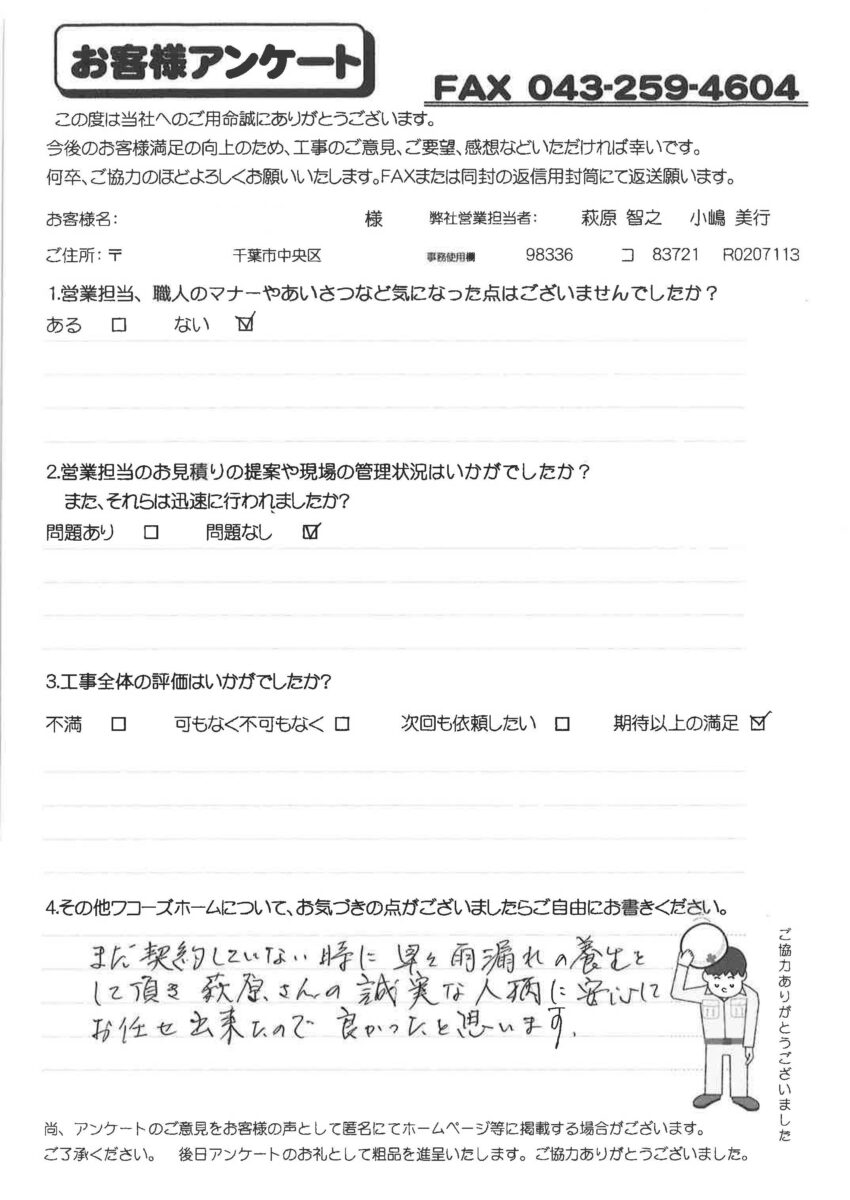 お客様アンケート
FAX 043-259-4604
この度は当社へのご用命誠にありがとうございます。
今後のお客様満足の向上のため、工事のご意見、ご要望、感想などいただければ幸いです。
何卒、ご協力のほどよろしくお願いいたします。FAXまたは同封の返信用封筒にて返送願います。
お客様名： 様 弊社営業担当者： 萩原 智之 小嶋 美行
ご住所：〒 千葉市中央区 事務使用欄 98336 コ 83721 R0207113
1.営業担当、職人のマナーやあいさつなど気になった点はございませんでしたか？
ある □ ない ☑
2.営業担当のお見積りの提案や現場の管理状況はいかがでしたか？
また、それらは迅速に行われましたか?
問題あり □ 問題なし ☑
3.工事全体の評価はいかがでしたか?
不満 □ 可もなく不可もなく □ 次回も依頼したい □ 期待以上の満足 ☑
4.その他ワコーズホームについて、お気づきの点がございましたらご自由にお書きください。
まだ契約していない時に早々雨漏れの養生を
して頂き萩原さんの誠実な人柄に安心して
お任せ出来たので良かったと思います。
ご協力ありがとうございました
尚、アンケートのご意見をお客様の声として匿名にてホームページ等に掲載する場合がございます。
ご了承ください。 後日アンケートのお礼として粗品を進呈いたします。ご協力ありがとうございました。